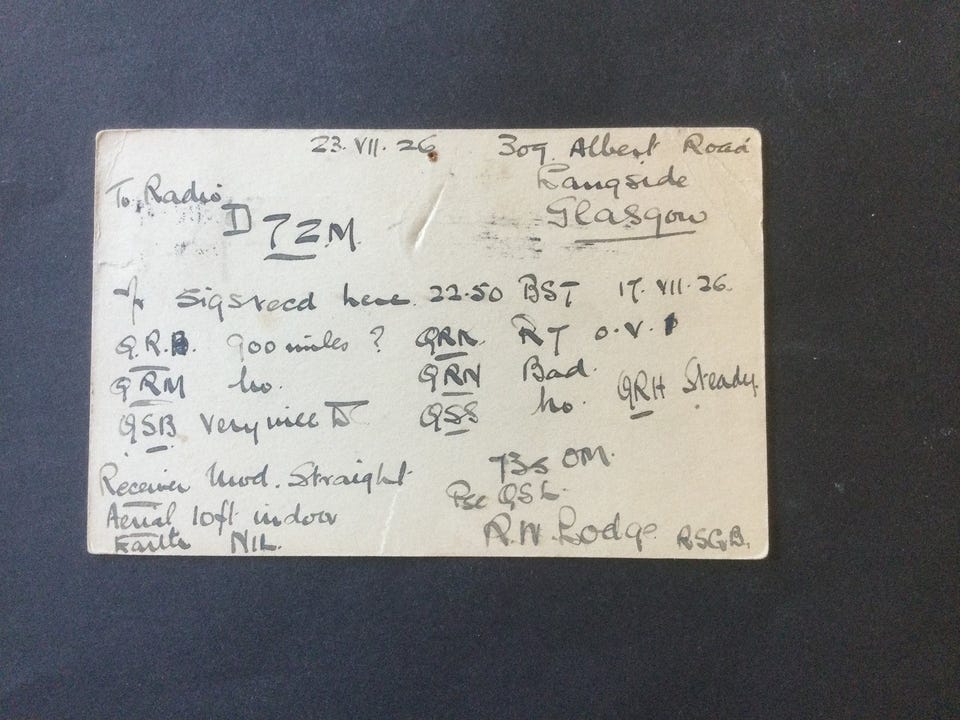 23. VII. 26
309. Albert Road
Langside
Glasgow
To Radio
D 7ZM.
Sigs recd here. 22.50 BST 17. VII. 26.
Q.R.B. 900 miles ? QRK. R7 O.V.1
QRM No. QRN Bad.
QSB Very nice QSS No. QRH Steady.
Receiver Unid. Straight
Aerial 10ft indoor
Earth NIL.
73s OM.
Pse QSL.
R.N. Lodge RSGB.